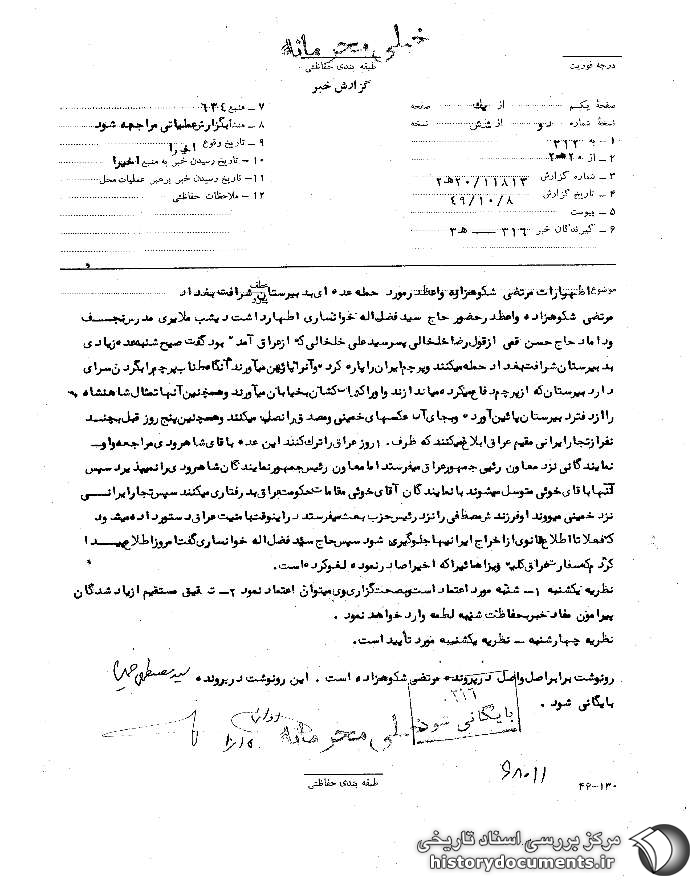 خیلی محرمانه
طبقه بندی حفاظتی
گزارش خبر
درجه فوریت
صفحهٔ یکم از یک صفحه
نسخهٔ شماره دو از شش نسخه
۱ ـ به ۳۱۲
۲ ـ از ۲۰ هـ ۲
۳ ـ شماره گزارش ۲۰/۱۱۸۱۳ هـ ۲
۴ ـ تاریخ گزارش ۴۹/۱۰/۸
۵ ـ پیوست
۶ ـ گیرندگان خبر ۳۱۶ ـ هـ ۳
۷ ـ منبع ۶۳۴
۸ ـ منشأ بگزارش عملیاتی مراجعه شود
۹ ـ تاریخ وقوع اخیرا
۱۰ ـ تاریخ رسیدن خبر به منبع اخیرا
۱۱ ـ تاریخ رسیدن خبر برهبر عملیات محل
۱۲ ـ ملاحظات حفاظتی
موضوع اظهارات مرتضی شکوهزاده واعظ در مورد حمله عده ای به دبیرستان شرافت بغداد
مرتضی شکوهزاده واعظ در حضور حاج سید فضل اله خوانساری اظهار داشت دیشب ملایری مدرس نجف
و داماد حاج حسن قمی از قول رضا خلخالی پسر سید علی خلخالی که از عراق آمده بود گفت صبح شنبه عده زیادی
به دبیرستان شرافت بغداد حمله میکنند و پرچم ایران را پاره کرده و آنرا پائین میآورند آنگاه طناب پرچم را بگردن سرای
دار دبیرستان که از پرچم دفاع میکرده میاندازند و او را کشان کشان بخیابان میآورند و همچنین آنها تمثال شاهنشاه
را از دفتر دبیرستان پائین آورده و بجای آن عکسهای خمینی و مصدق را نصب میکنند و همچنین پنج روز قبل بچند
نفر از تجار ایرانی مقیم عراق ابلاغ میکنند که ظرف روز عراق را ترک کنند این عده به آقای شاهرودی مراجعه و او
نمایندگانی نزد معاون رئیس جمهور عراق میفرستد اما معاون رئیس جمهور نمایندگان شاهرودی را نمیپذیرد سپس
آنها به آقای خوئی متوسل میشوند با نمایندگان آقای خوئی مقامات حکومت عراق بدرفتاری میکنند سپس تجار ایرانی
نزد خمینی میروند او فرزندش مصطفی را نزد رئیس حزب بعث میفرستد در اینوقت بامنیت عراق دستور داده میشود
که فعلا تا اطلاع ثانوی از اخراج ایرانیها جلوگیری شود سپس حاج سید فضل اله خوانساری گفت امروز اطلاع پیدا
کردم که سفارت عراق کلیه ویزاهائیرا که اخیرا صادر نموده لغو کرده است.
نظریه یکشنبه ۱ـ شنبه مورد اعتماد است و بصحت گزاری وی میتوان اعتماد نمود ۲ـ تحقیق مستقیم از یاد شدگان
پیرامون مفاد خبر بحفاظت شنبه لطمه وارد خواهد نمود .
نظریه چهارشنبه ـ نظریه یکشنبه مورد تأیید است.
رونوشت برابر اصل و اصل در پرونده مرتضی شکوهزاده است . این رونوشت در پرونده
بایگانی شود .
۳۱۶
بایگانی شود
خیلی محرمانه
طبقه بندی حفاظتی
۴۶-۱۳۰
مرکز بررسی اسناد تاریخی
historydocuments.ir